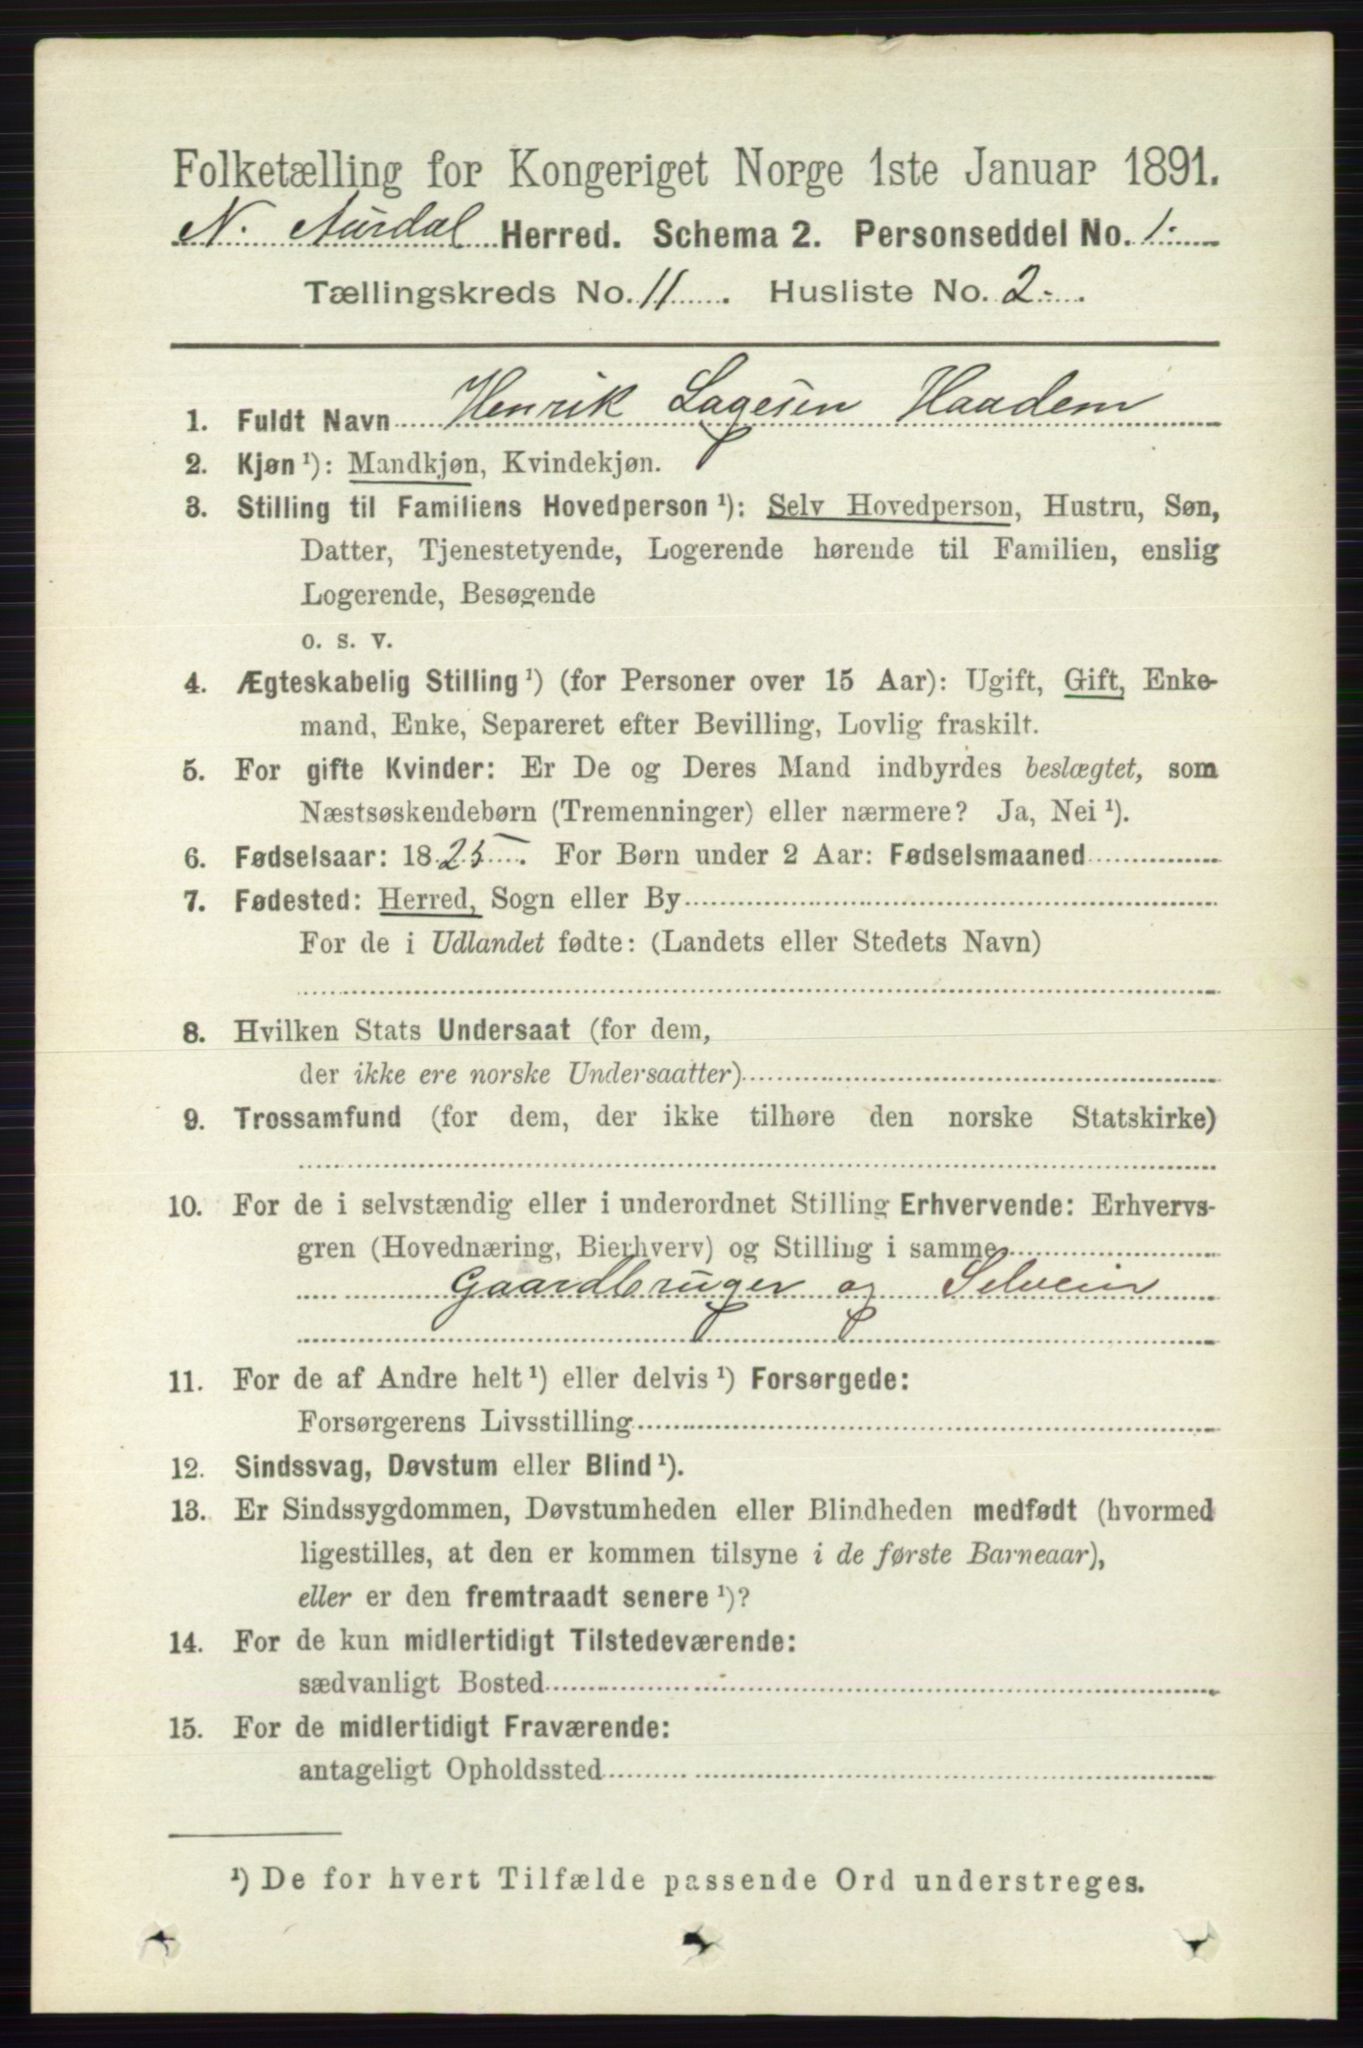 Folketælling for Kongeriget Norge 1ste Januar 1891.
N. Aurdal Herred. Schema 2. Personseddel No. 1.
Tællingskreds No. 11. Husliste No. 2.
1. Fuldt Navn Henrik Lagesen Haadem
2. Kjøn ¹): Mandkjøn, Kvindekjøn.
3. Stilling til Familiens Hovedperson ¹): Selv Hovedperson, Hustru, Søn,
Datter, Tjenestetyende, Logerende hørende til Familien, enslig
Logerende, Besøgende
o. s. v.
4. Ægteskabelig Stilling ¹) (for Personer over 15 Aar): Ugift, Gift, Enke-
mand, Enke, Separeret efter Bevilling, Lovlig fraskilt.
5. For gifte Kvinder: Er De og Deres Mand indbyrdes beslægtet, som
Næstsøskendebørn (Tremenninger) eller nærmere? Ja, Nei ¹).
6. Fødselsaar: 1825. For Børn under 2 Aar: Fødselsmaaned
7. Fødested: Herred, Sogn eller By
For de i Udlandet fødte: (Landets eller Stedets Navn)
8. Hvilken Stats Undersaat (for dem,
der ikke ere norske Undersaatter)
9. Trossamfund (for dem, der ikke tilhøre den norske Statskirke)
10. For de i selvstændig eller i underordnet Stilling Erhvervende: Erhvervs-
gren (Hovednæring, Bierhverv) og Stilling i samme
Gaardbruger og Selveier
11. For de af Andre helt ¹) eller delvis ¹) Forsørgede:
Forsørgerens Livsstilling
12. Sindssvag, Døvstum eller Blind ¹).
13. Er Sindssygdommen, Døvstumheden eller Blindheden medfødt (hvormed
ligestilles, at den er kommen tilsyne i de første Barneaar),
eller er den fremtraadt senere ¹)?
14. For de kun midlertidigt Tilstedeværende:
sædvanligt Bosted
15. For de midlertidigt Fraværende:
antageligt Opholdssted
¹) De for hvert Tilfælde passende Ord understreges.